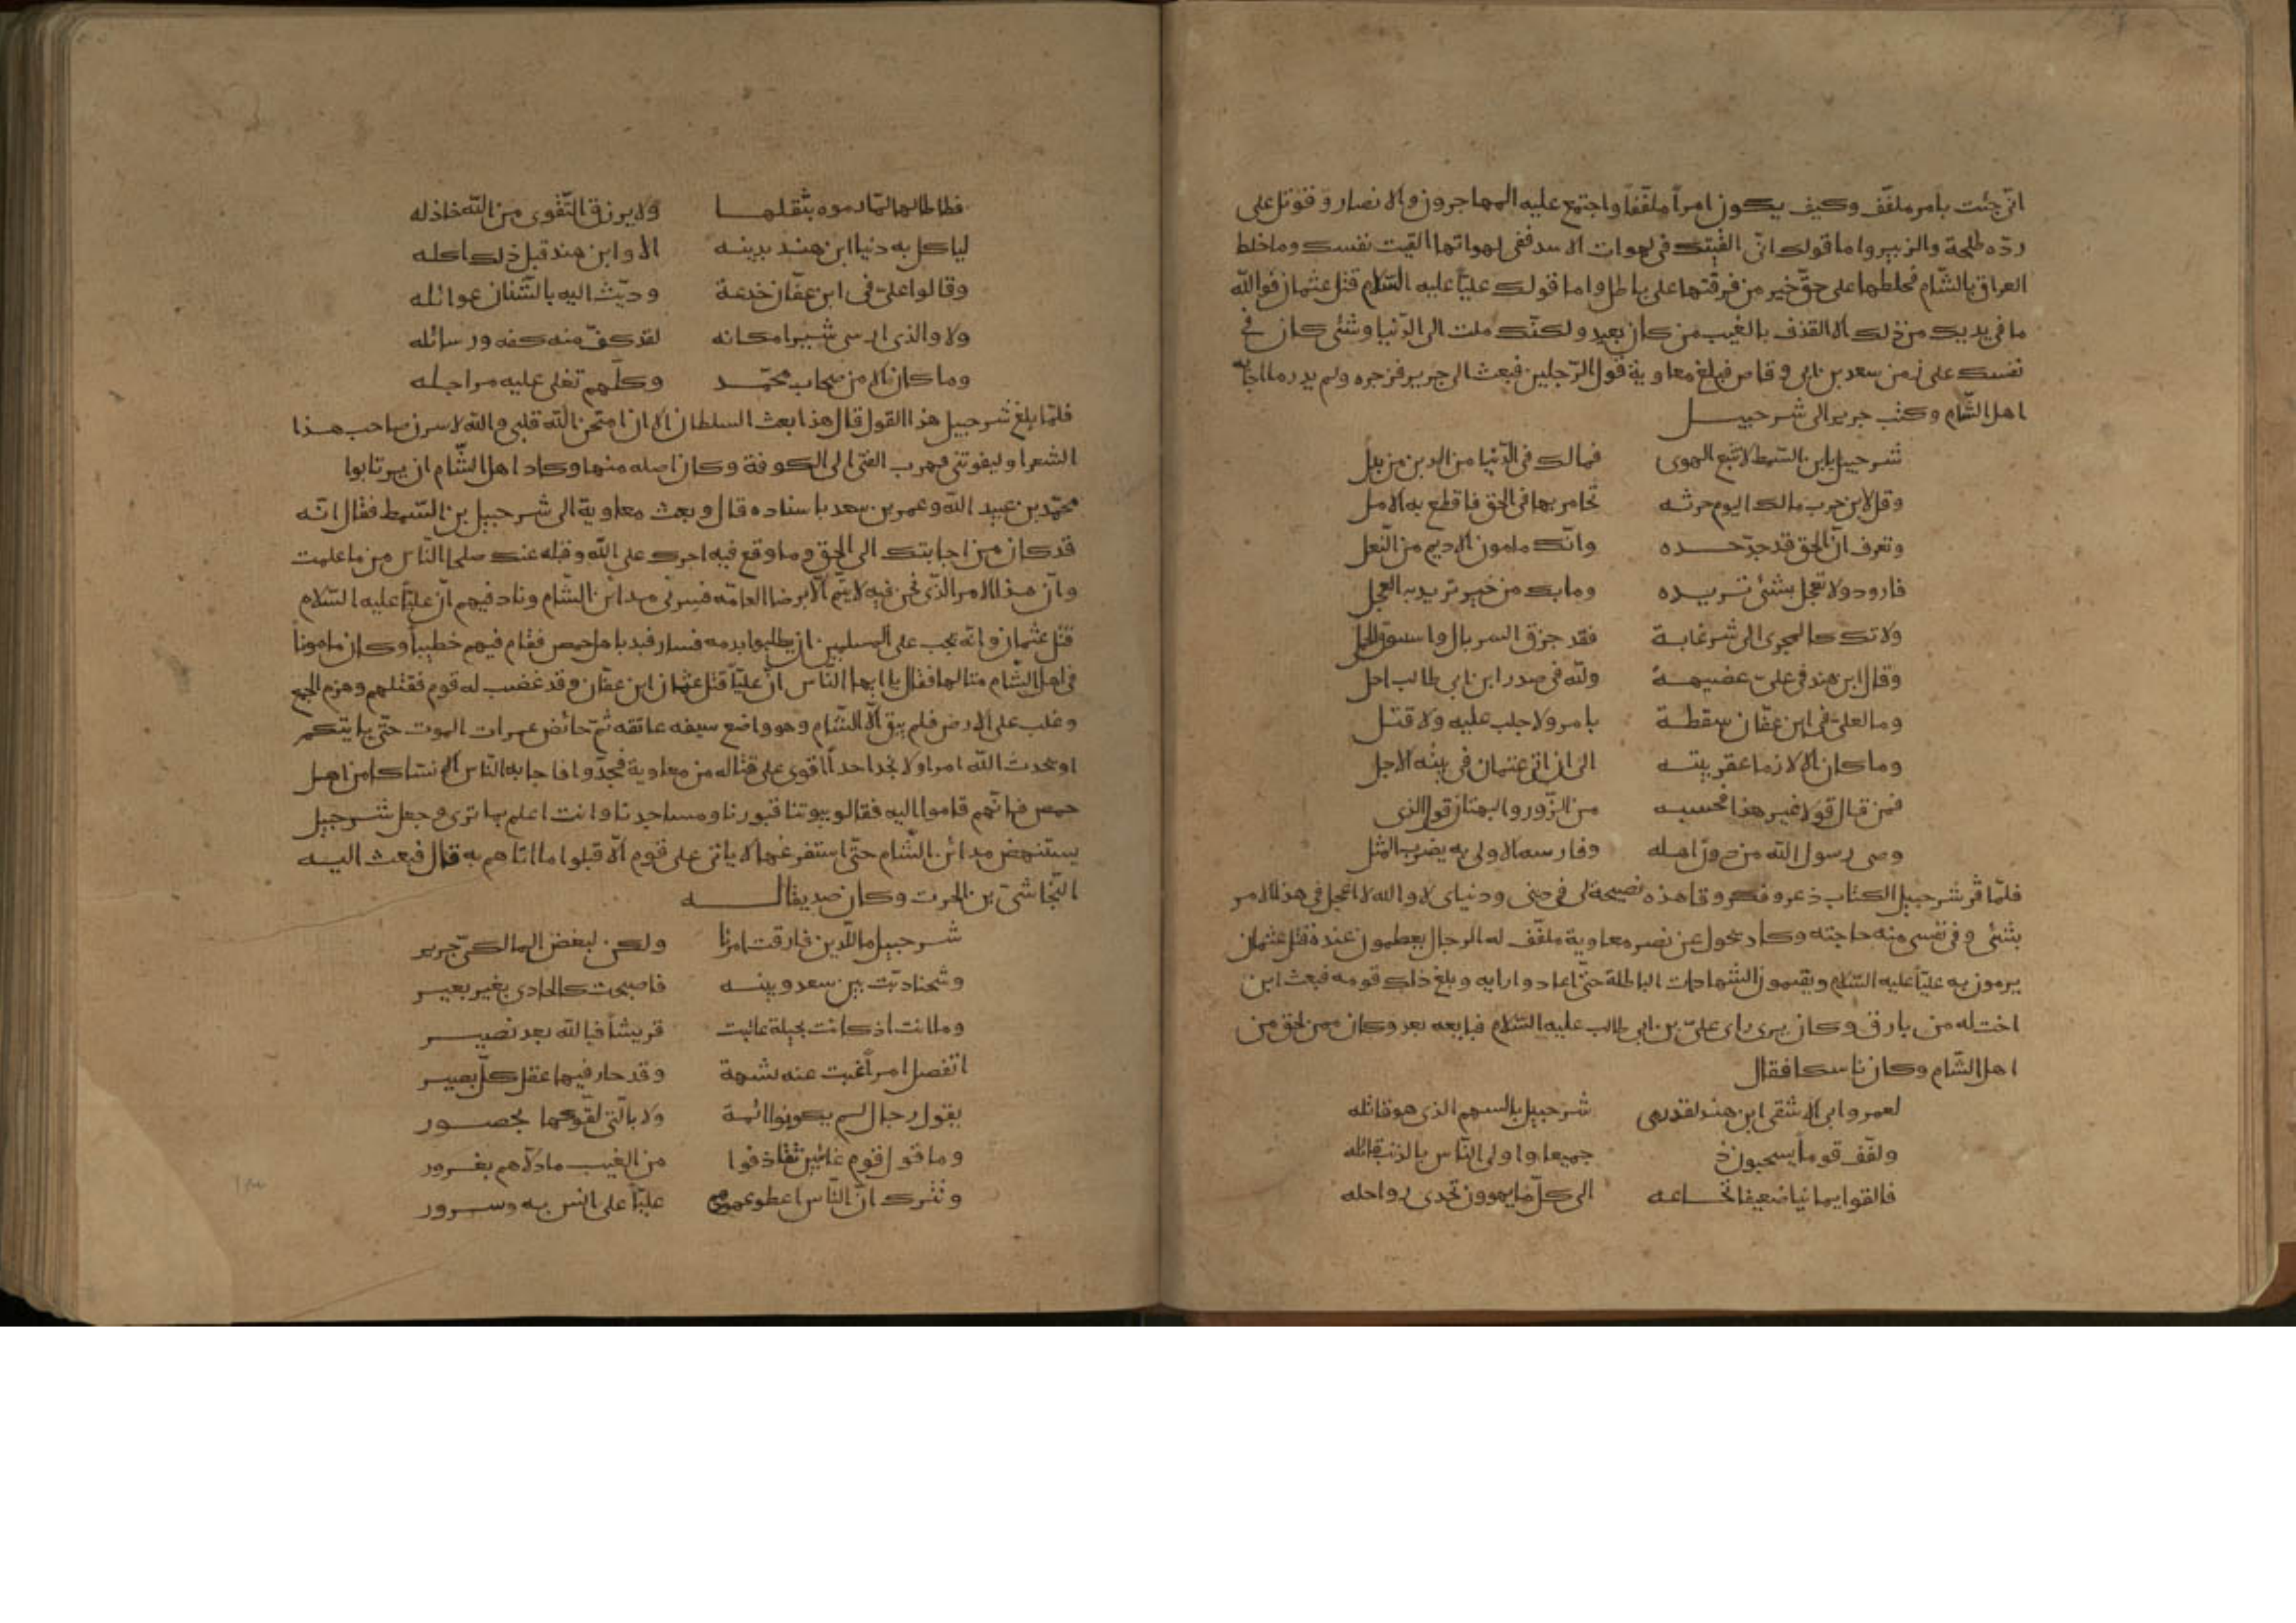 انى جئت بامر ملفّف وكيف يكون امراً ملفّفاً واجتمع عليه المهاجرون والانصار وقوتل على
ردّه طلحة والزبير واما قولك انّى القيتك فى لهوات الاسد ففى لهواتها القيت نفسك وما خلط
العراق بالشّام فخلطها على حقّ خير من فرقتها على باطل واما قولك عليّاً عليه السّلام قتل عثمان فوالله
ما فى يديك من ذلك الا القذف بالغيب من كان بعيد ولكنّك ملت الى الدّنيا وشئ كان فى
نفسك على زمن سعد بن ابى وقاص فبلغ معاوية قول الرّجلين فبعث الى جرير فزجره ولم يدر ما اجابه
اهل الشّام وكتب جرير الى شرحبيل
شرحبيل يابن السّمط لا تتّبع الهوى فمالك فى الدّنيا من الدين من بدل
وقل لابن حرب مالك اليوم حرثه تحامر بها فى الحق فاقطع به الامل
وتعرف انّ الحق قد جدّ حده وانّك مامون الاديم من النّعل
فارود ولا تعجل بشئ تريده وما بك من خير تريد به العجل
ولا تك كالمجرى الى شر غاية فقد خرق السربال واستوق الجمل
وقال ابن هند فى علىّ عضيهة ولله فى صدر ابن ابى طالب اجل
وما لعلى فى ابن عفّان سقطة بامر ولا جلب عليه ولا قتل
وما كان الا لازما عقر بيته الى ان اتى عثمان فى بيته الاجل
فمن قال قولا غير هذا فحسبه من الزّور والبهتان قول الذى
وصى رسول الله من دون اهله وفارسه الاولى به يضرب المثل
فلمّا قر شرحبيل الكتاب ذعر وفكر وقا هذه نصيحة لى فى دينى ودنياى لا والله لا اعجل فى هذا الامر
بشئ وفى نفسى منه حاجته وكاد يحول عن نصر معاوية ملفّف له الرجال يعظمون عنده قتل عثمان
يرمون به عليّاً عليه السّلام ويقيمون الشهادات الباطلة حتّى اعادوا رايه وبلغ ذلك قومه فبعث ابن
اخت له من بارق وكان يرى راى علىّ بن ابى طالب عليه السّلام فبايعه بعد وكان ممن لحق من
اهل الشّام وكان ناسكا فقال
لعمر وابى الاشقى ابن هند لقد رمى شرحبيل بالسهم الذى هو قاتله
ولفّف قوماً يسحبون جميعا واولى النّاس بالذنب قائله
فالقوا يمانيا ضعيفا نخاعه الى كلّ ما يهوون تحدى رواحله
فطاطا لها لمّا رموه بثقلها ولا يرزق التّقوى من الله خاذله
لياكل به دنيا ابن هند بدينه الا وابن هند قبل ذلك اكله
وقالوا علىّ فى ابن عفّان خدعة ودبّت اليه بالشّنان غوائله
ولا والذى ارسى شبيرا مكانه لقد كفّ منه كفه ورسائله
وما كان الا من صحاب محمّد وكلّهم تغلى عليه مراجله
فلمّا بلغ شرحبيل هذا القول قال هذا بعث السلطان الان امتحن الله قلبى والله لاسرن صاحب هذا
الشعر او ليفوتنى فهرب الفتى الى الكوفة وكان اصله منها وكاد اهل الشّام ان يرتابوا
محمّد بن عبيد الله وعمر بن سعد باسناده قال وبعث معاوية الى شرحبيل بن السّمط فقال انّه
قد كان من اجابتك الى الحق وما وقع فيه اجرك على الله وقبله عنك صلحا النّاس من ما علمت
وانّ هذا الامر الّذى نحن فيه لا يتم الّا برضا العامّه فسر فى مدائن الشّام وناد فيهم انّ عليّاً عليه السّلام
قتل عثمان وانّه يجب على المسلمين ان يطلبوا بدمه فسار فبد باهل حمص فقام فيهم خطيباً وكان ماموناً
فى اهل الشّام متالها فقال يا ايها النّاس انّ عليّاً قتل عثمان ابن عفّان وقد غضب له قوم فقتلهم وهزم الجمع
وغلب على الارض فلم يبق الّا الشّام وهو واضع سيفه عاتقه ثمّ خائض غمرات الموت حتّى ياتيكم
او يحدث الله امرا ولا نجد احداً اقوى على قتاله من معاوية فجدّوا فاجابه النّاس الا نساكا من اهل
حمص فانّهم قاموا اليه فقالو بيوتنا قبورنا ومساجدنا وانت اعلم بما ترى وجعل شرحبيل
يستنهض مدائن الشّام حتّى استفرغها لا ياتى على قوم الّا قبلوا ما اتاهم به قال فبعث اليه
النّجاشىّ بن الحرث وكان صديقا له
شرحبيل ما للّدين فارقت امرنا ولكن لبغض المالكىّ جرير
وشحنا دبّت بين سعد وبينه فاصبحت كالحادى بغير بعير
وما انت اذ كانت بجيلة عاتبت قريشاً فيا لله بعد نصير
اتفصل امراً غبت عنه بشبهة وقد حار فيها عقل كلّ بصير
يقول رجال لم يكونوا ائمة ولا بالّتى لقّوكها بحضور
وما قول قوم غائبين تقاذفوا من الغيب ما دلّاهم بغرور
وتترك انّ النّاس اعطوا عهودهم عليّاً على انس به وسرور